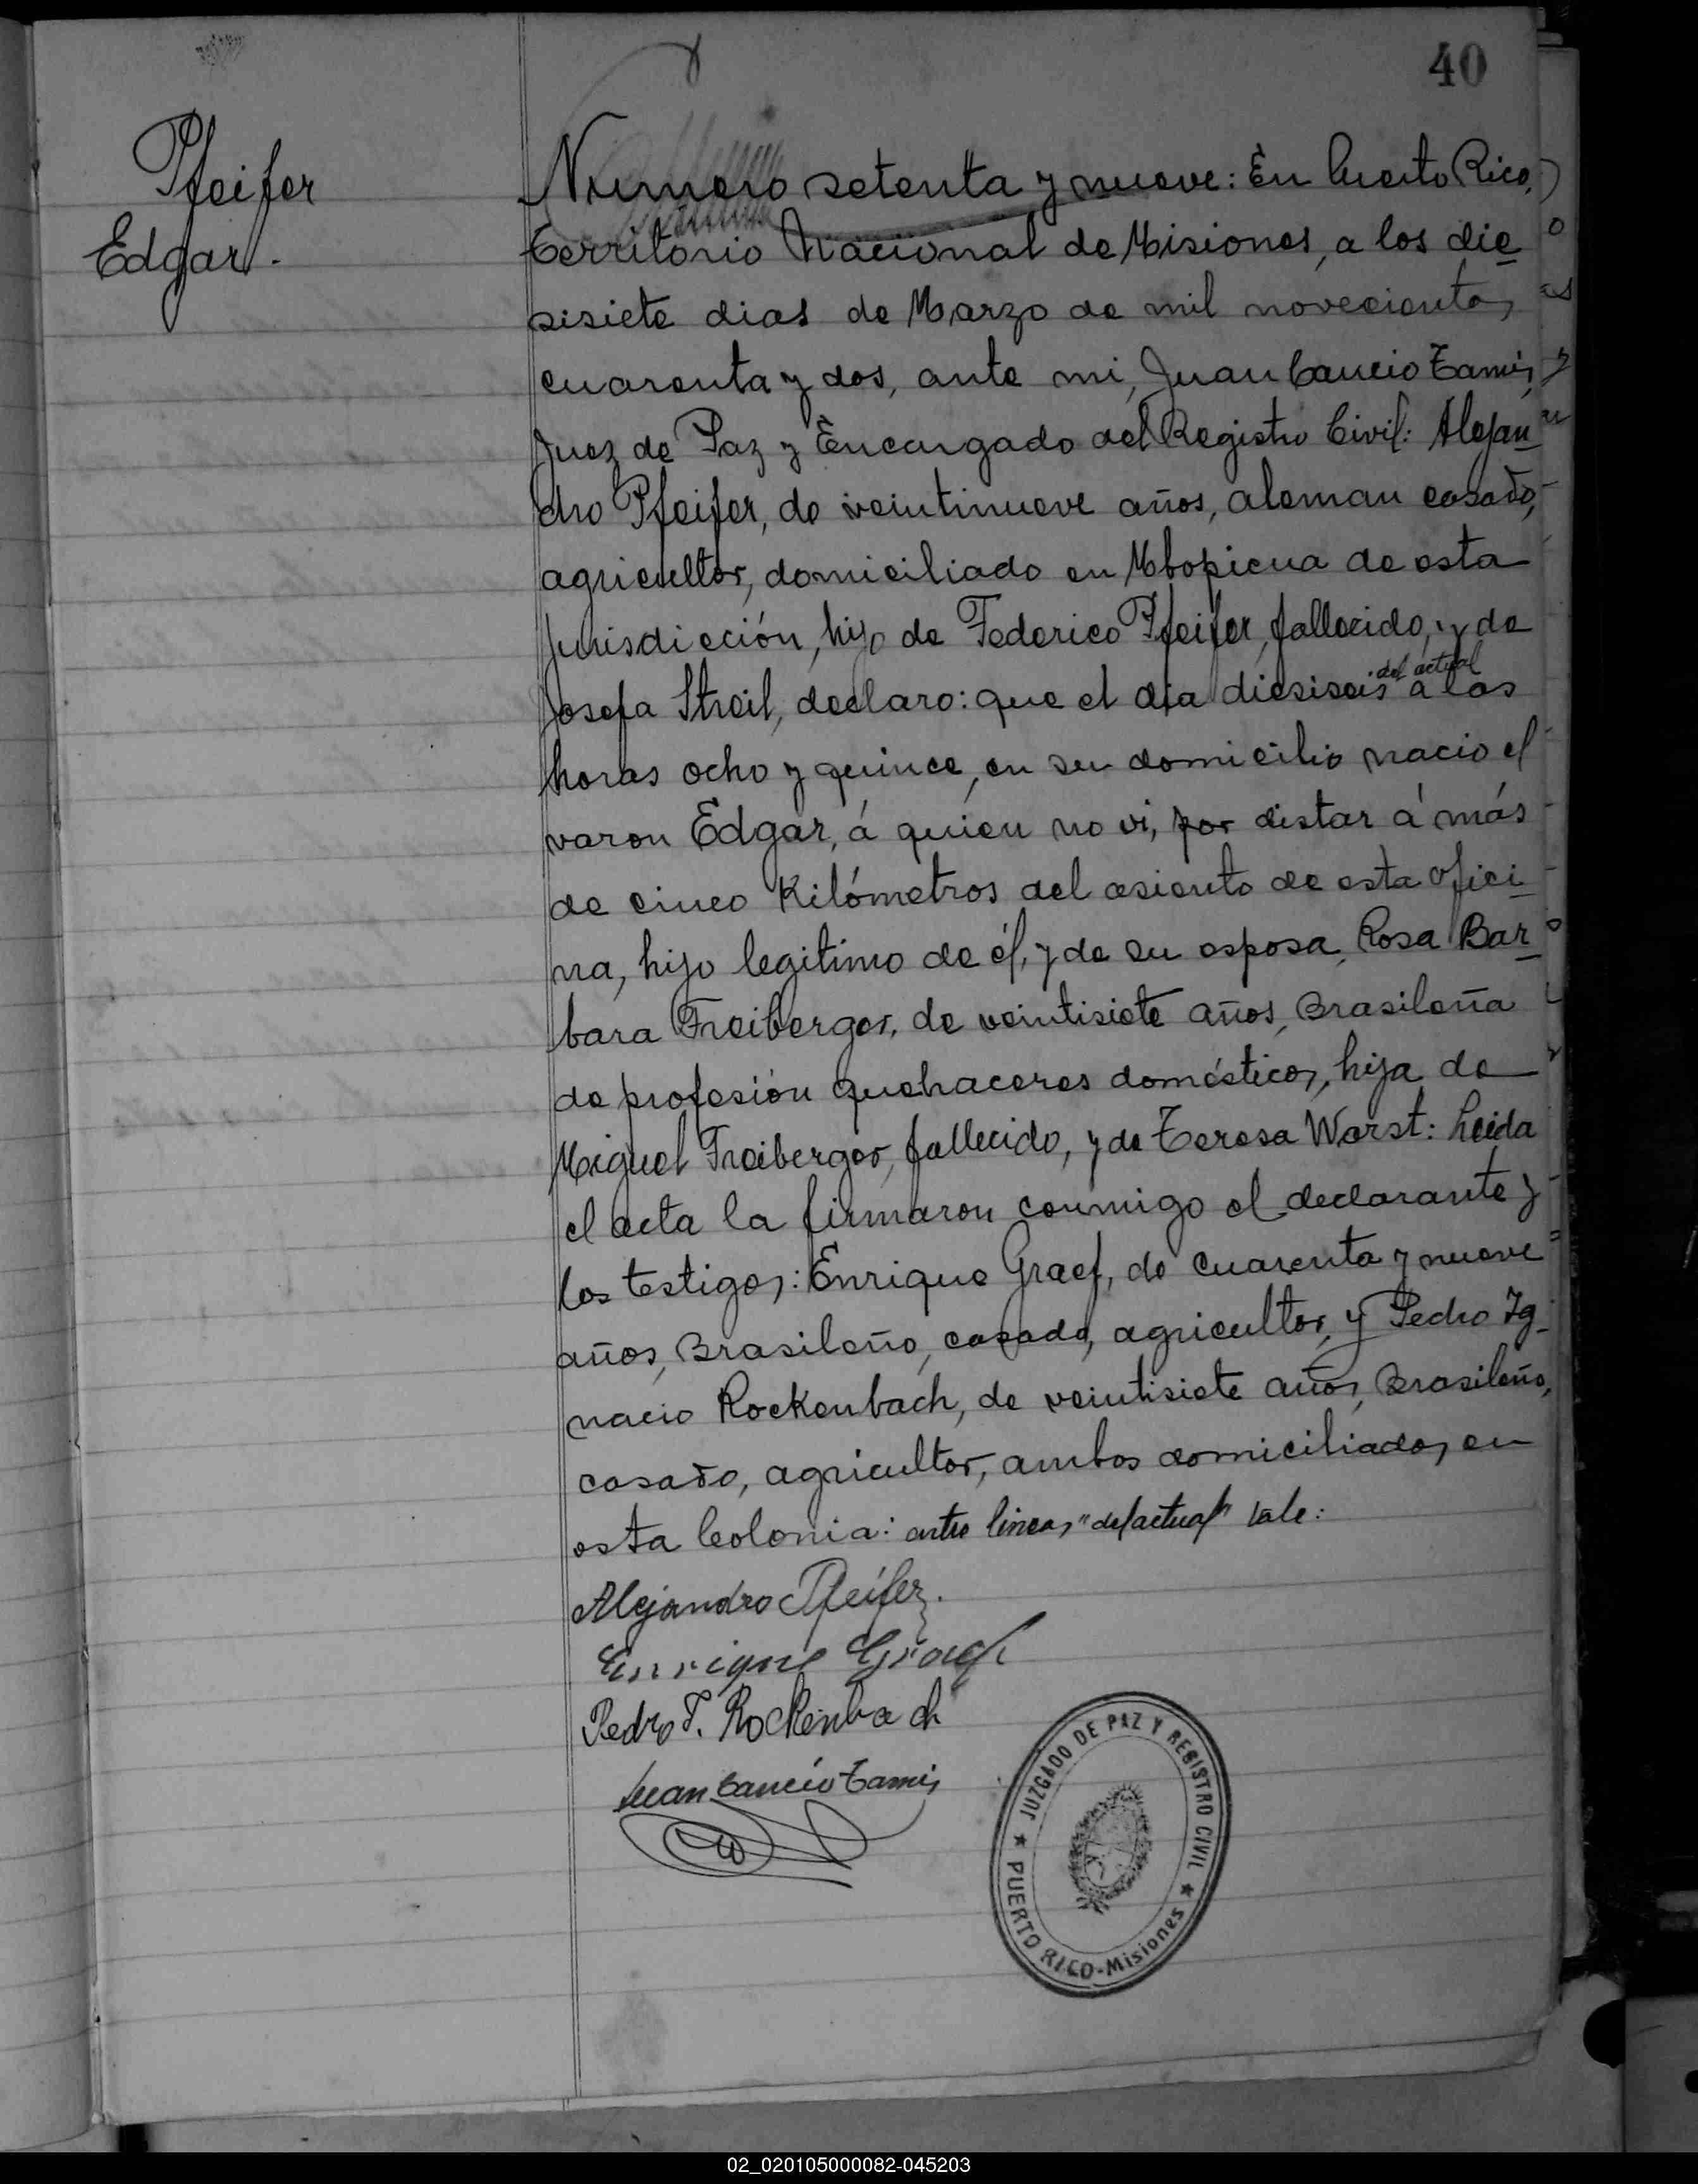 40
Pfeifer
Edgar.
Numero setenta y nueve: En Puerto Rico,
territorio Nacional de Misiones, a los die
sisiete dias de Marzo de mil novecientos
cuarenta y dos, ante mi, Juan Cancio Tamis
Juez de Paz y Encargado del Registro Civil: Alejan
dro Pfeifer, de veintinueve años, aleman casado,
agricultor, domiciliado en Mbopicua de esta
Jurisdicción, hijo de Federico Pfeifer, fallecido, y de
Josefa Streil, declaro: que el dia diesiseis del actual a las
horas ocho y quince, en su domicilio nacio el
varon Edgar, á quien no vi, por distar á más
de cinco Kilómetros del asiento de esta ofici
na, hijo legitimo de él, y de su esposa, Rosa Bar
bara Freiberger, de veintisiete años, Brasileña
de profesión quehaceres domésticos, hija de
Miguel Freiberger, fallecido, y de Teresa Worst: Leida
el acta la firmaron conmigo el declarante y
los testigos: Enrique Graef, de cuarenta y nueve
años, Brasileño, casado, agricultor, y Pedro Ig
nacio Rockenbach, de veintisiete años, Brasileño,
casado, agricultor, ambos domiciliados en
esta Colonia: entre lineas "del actual" Vale:
Alejandro Pfeifer.
Enrique Graef
Pedro I. Rockenbach
Juan Cancio Tamis
JUZGADO DE PAZ Y REGISTRO CIVIL
PUERTO RICO-Misiones
02_020105000082-045203